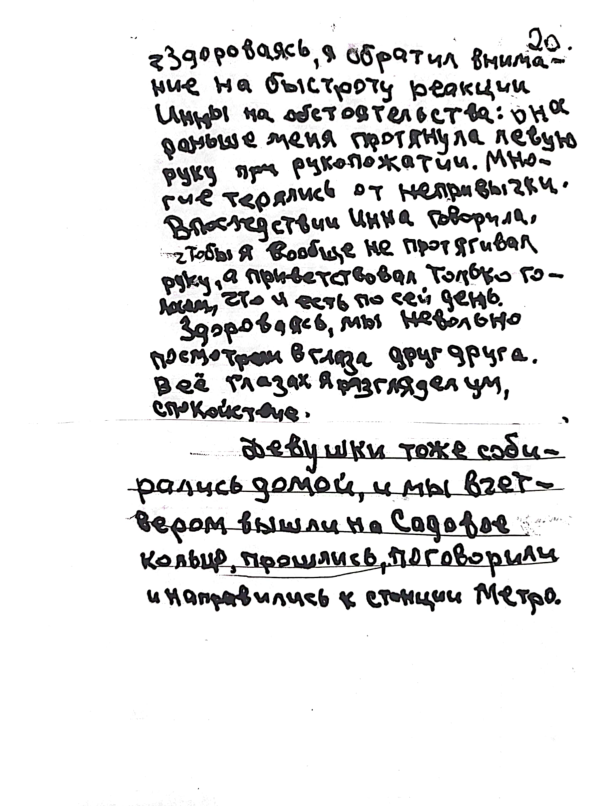 20.
Здороваясь, я обратил внима-
ние на быстроту реакции
Инны на обстоятельства: она
раньше меня протянула левую
руку при рукопожатии. Мно-
гие терялись от непривычки.
Впоследствии Инна говорила,
чтобы я вообще не протягивал
руку, а приветствовал только го-
лосом, что и есть по сей день.
Здороваясь, мы невольно
посмотрели в глаза друг друга.
В её глазах я разглядел ум,
спокойствие.
Девушки тоже соби-
рались домой, и мы вчет-
вером вышли на Садовое
кольцо, прошлись, поговорили
и направились к станции Метро.